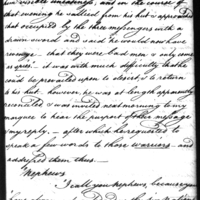 visible uneasiness, and in the course of
that evening he sallied from his hut & approached
that occupied by the three messengers with a
drawn sword and said he would now have
revenge - that they were bad men & only came
as spies." it was with much difficulty that he
could be prevailed upon to desist, & to return
to his hut. however, he was at length apparently
reconciled & was invited next morning to my
marquee to hear the purport of their message
& my reply. - after which he requested to
speak a few words to those warriors - and
addressed them thus -
"Nephews
I call you nephews, because you